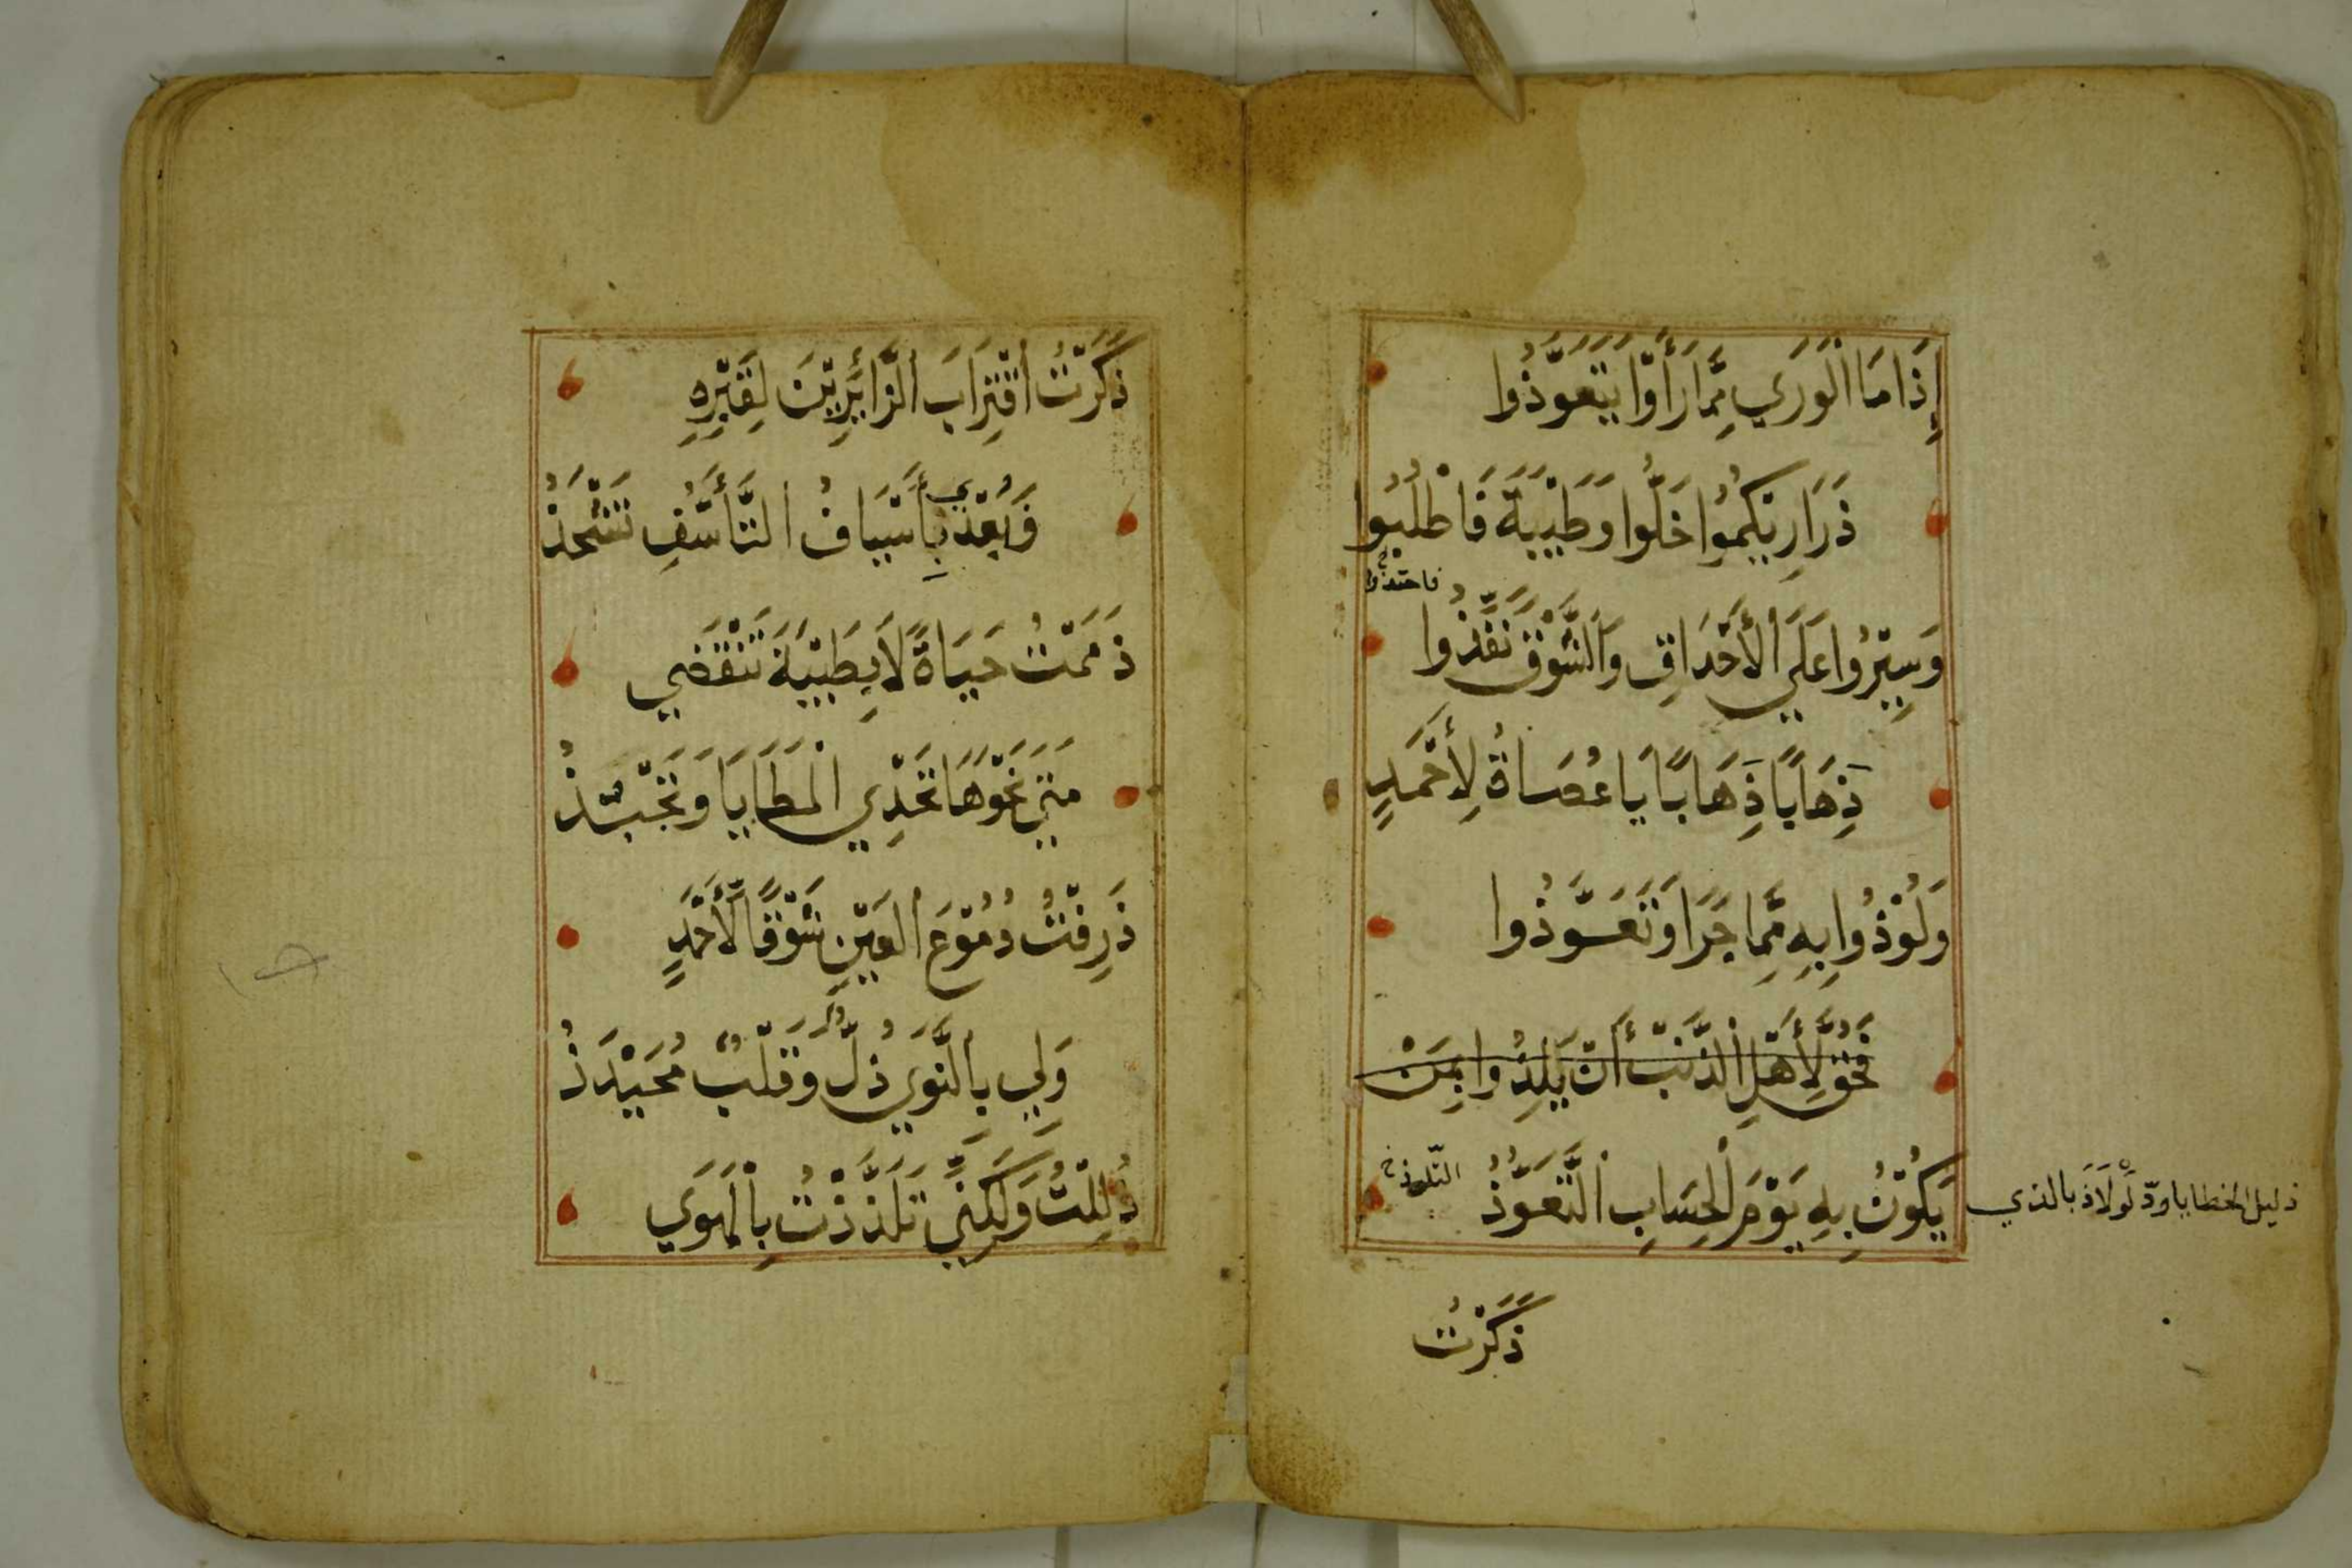 إِذَا مَا الْوَرَي مِمَّا رَأَوْا يَتَعَوَّذُوا
ذَرَارِيكُمُوا خَلُّوا وَطَيْبَةَ فَاطْلُبُوا
فاحتذوا خ
وَسِيْرُوا عَلَي الأَحْدَاقِ وَالشَّوْقَ نَفِّذُوا
ذِهَابًا ذِهَابًا يَا عُصَاةُ لِأَحْمَدٍ
وَلُوْذُوا بِهِ مِمَّا جَرَا وَتَعَوَّذُوا
فَحُقَّ لِأَهْلِ الذَّنْبِ أَنْ يَلُذُوا بِمَنْ
يَكُوْنُ بِهِ يَوْمَ الْحِسَابِ التَّعَوُّذُ
التّلوذ خ
ذليل الخطايا ودّ لَوْلَاذَ بالذي
ذَكَرْتُ
ذَكَرْتُ اقْتِرَابَ الزَّائِرِيْنَ لِقَبْرِهِ
وَبُعْدِي بِأَسْيَافُ التَّأَسُّفِ تَشْحَذُ
ذَمَمْتُ حَيَاةً لَا بِطَيْبَةَ تَنْقَضِي
مَتَي نَحْوَهَا تَخْدِي الْمَطَايَا وَتَجْبِذُ
ذَرِفْتُ دُمُوْعَ الْعَيْنِ شَوْقًا لِّأَحْمَدٍ
وَلِي بِالنَّوَي ذُلٌّ وَقَلْبٌ مُحَيْذَذُ
ذُلِلْتُ وَلَكِنِّي تَلَذَّذْتُ بِالْهَوَي